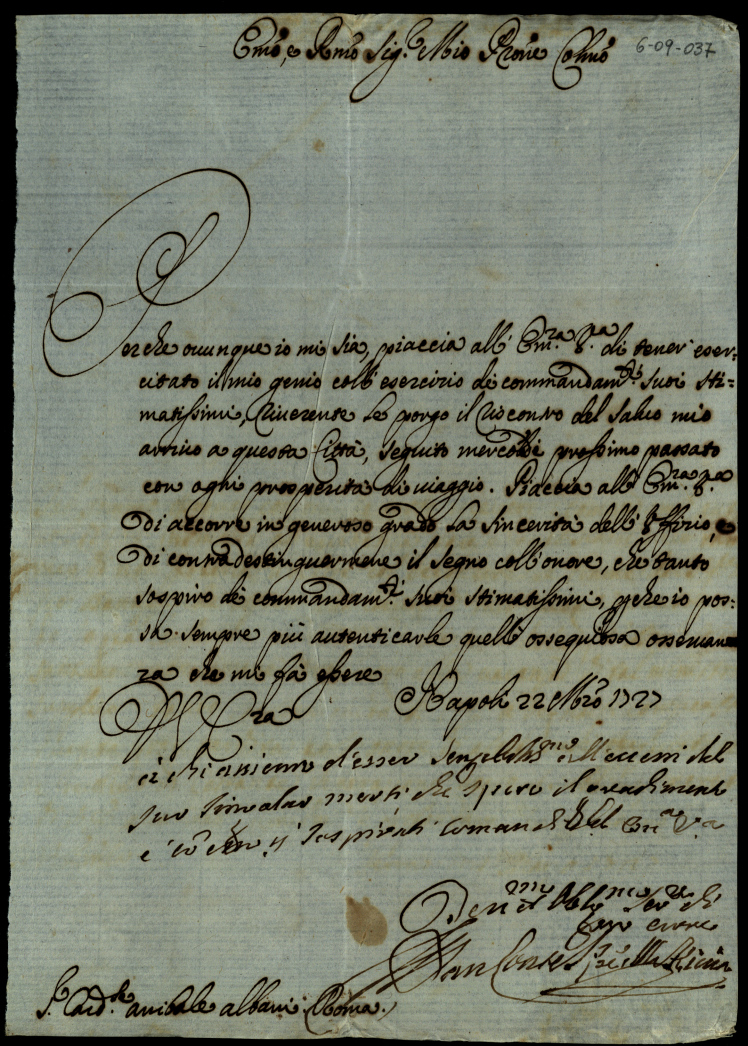 Emo, e Rmo Sig.r Mio Prone Colmo
6-09-037
Perche ovunque io mi sia, piaccia all' Em.za V.ra di tener' eser-
citato il mio genio coll' esercizio de commandam.ti suoi sti-
matissimi, riverente le porgo il riscontro del salvo mio
arrivo a questa Città, seguito mercoldi prossimo passato
con ogni prosperità di viaggio. Piaccia all' Em.za V.ra
di accorre in generoso grado la sincerità dell' Uffizio, e
di contradestinguermene il segno coll' onore, che tanto
sospiro de commandam.ti suoi stimatissimi, perche io pos-
sa sempre più autenticarle quell' ossequiosa osservan-
za che mi fà essere
Di V. Em.za
Napoli 22 Mrzo 1727
d'esser all' eccessi del
suo singolar merti che spero il gradiment
e sospirati comandi del Em.a V.a
Dev.mo et Obl.mo Ser.re di
cuore
S. Card.le Anibale Albani (Roma.)